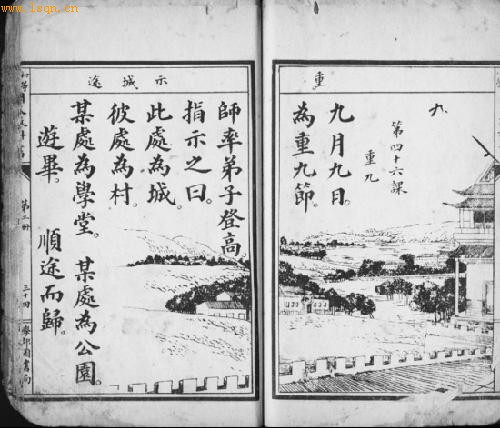 www.lsqn.cn
重
九
第四十六課
重九
九月九日。
為重九節。
師率弟子登高
指示之曰。
此處為城。
彼處為村。
某處為學堂。某處為公園。
遊畢。順途而歸。
示城途
第二冊
三十四